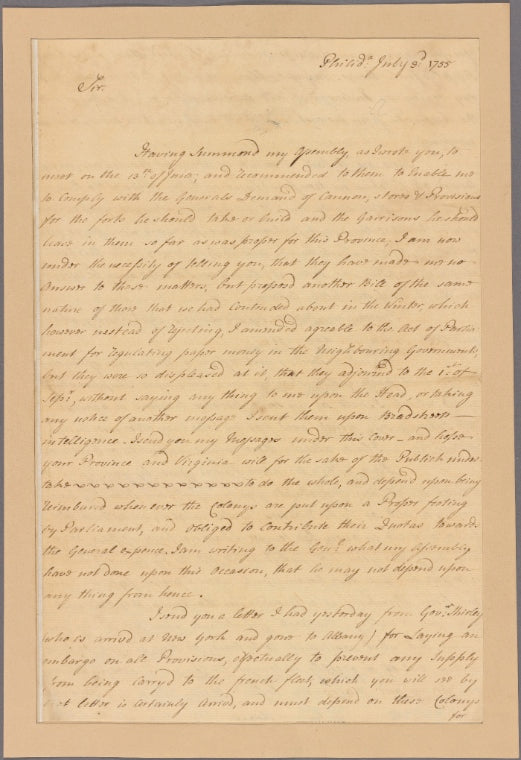 Philid.ª July 3.d 1755
Sir.
Having Summond my Assembly, as I wrote you, to
meet on the 13.th of June; and recommended to them to Enable me
to Comply with the Generals Demand of Cannon, stores & Provisions
for the forts he should take or build and the Garrisons he should
leave in them so far as was proper for this Province, I am now
under the necessity of telling you, that they have made me no
answer to those matters, but prepared another Bill of the same
nature of those that we had Contended about in the Winter, which
however instead of rejecting, I amended agreable to the Act of Parlia
ment for regulating paper money in the Neighbouring Governments,
but they were so displeased at it that they adjourned to the 1.st of
Sep.r, without saying any thing to me upon the Head, or taking
any notice of another message I sent them upon Bradstreets
intelligence. I send you my Messages under this Cover and hope
your Province and Virginia will for the sake of the Publick under-
take to do the whole, and depend upon being
reimbursd when ever the Colonys are put upon a Proper footing
by Parliament, and obliged to Contribute their Quotas towards
the General expence. I am writing to the Gen.l what my Assembly
have not done upon this Occasion, that he may not depend upon
any thing from hence.
I send you a letter I had yesterday from Gov.r Shirley
(who is arrivd at New York and gone to Albany) for Laying an
embargo on all Provisions, effectually to prevent any Supply
from being carryd to the french fleet, which you will see by
that letter is certainly arrivd, and must depend on these Colonys
for